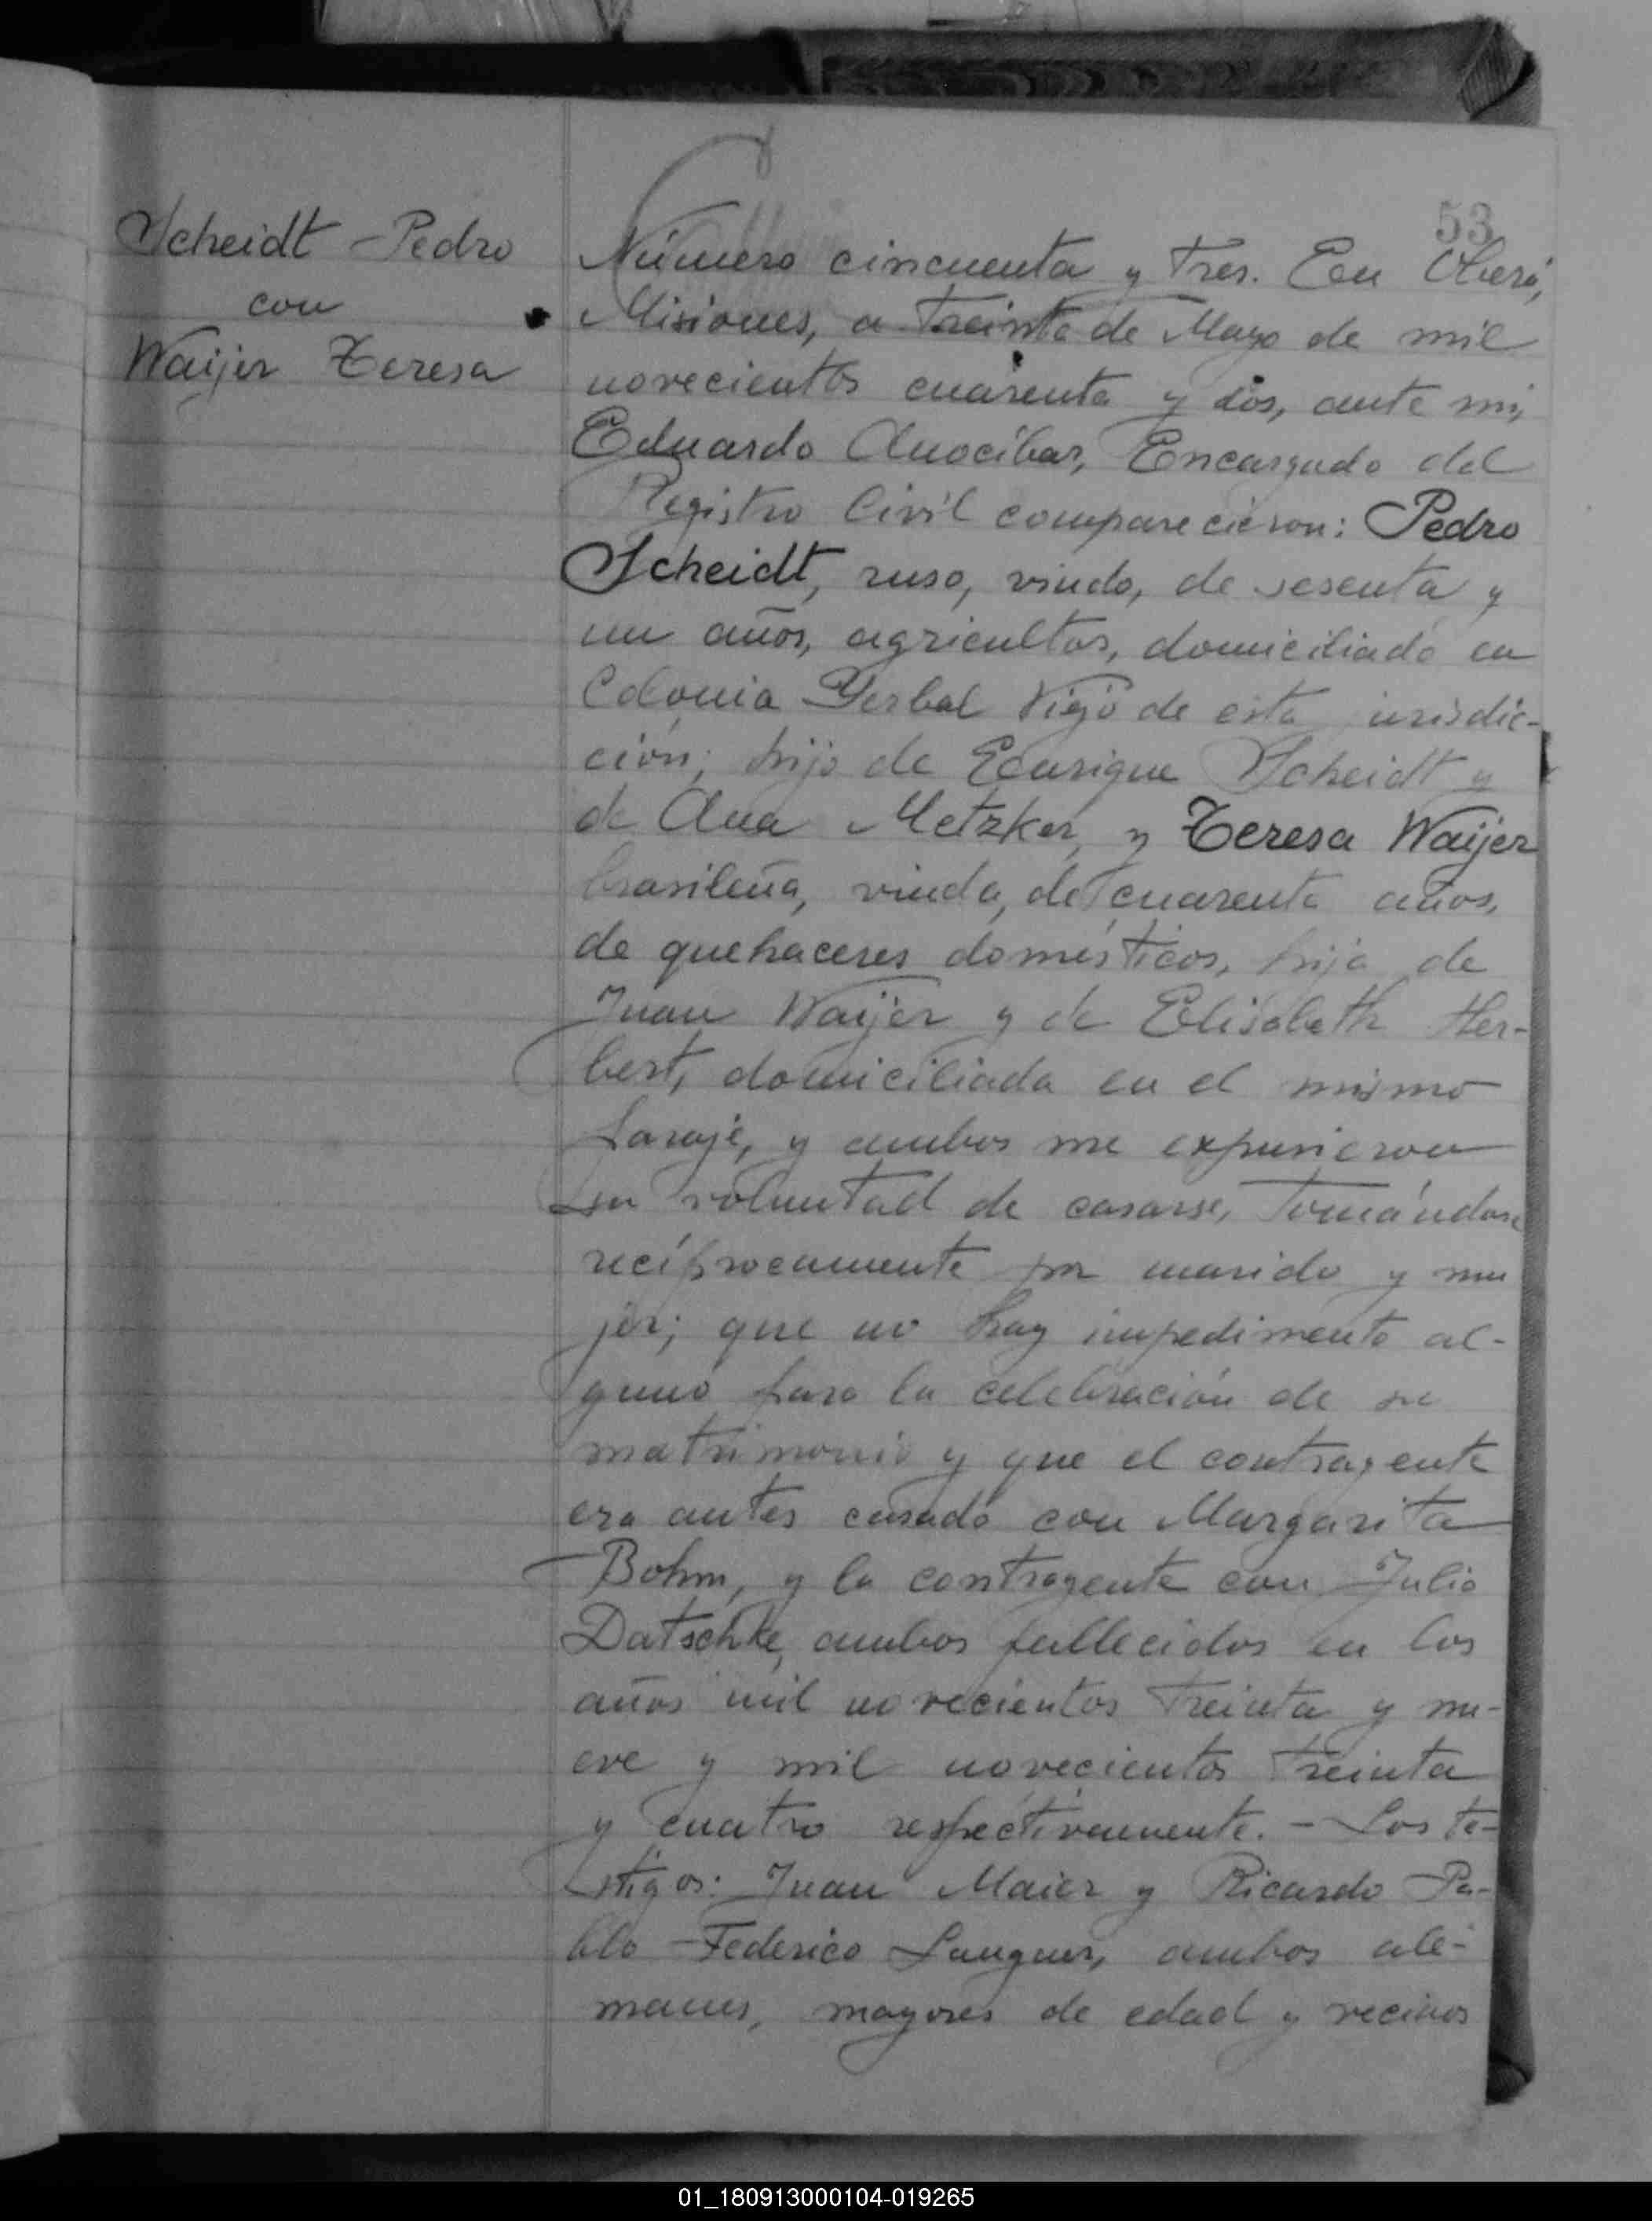 53
Scheidt Pedro
con
Waijer Teresa
Número cincuenta y tres. En Oberá,
Misiones, a treinta de Mayo de mil
novecientos cuarenta y dos, ante mi,
Eduardo Anocíbar, Encargado del
Registro Civil comparecieron: Pedro
Scheidt, ruso, viudo, de sesenta y
un años, agricultor, domiciliado en
Colonia Yerbal Viejo de esta jurisdic-
ción; hijo de Enrique Scheidt y
de Ana Metzker, y Teresa Waijer
brasileña, viuda, de cuarenta años,
de quehaceres domésticos, hija de
Juan Waijer y de Elisabeth Her-
bert, domiciliada en el mismo
paraje, y ambos me expusieron
su voluntad de casarse, tomándose
recíprocamente por marido y mu
jer; que no hay impedimento al-
guno para la celebración de su
matrimonio y que el contragente
era antes casado con Margarita
Bohm, y la contragente con Julio
Datschke, ambos fallecidos en los
años mil novecientos treinta y nu-
eve y mil novecientos treinta
y cuatro respectivamente. - Los te-
stigos: Juan Maier y Ricardo Pa-
blo Federico Languer, ambos ale-
manes, mayores de edad y vecinos
01_180913000104-019265